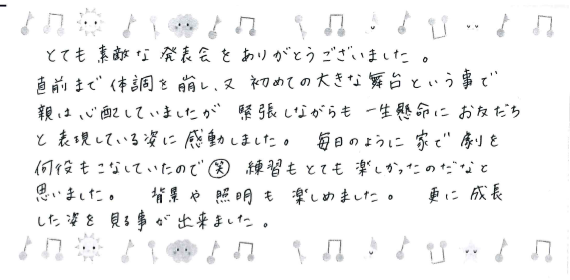 とても素敵な発表会をありがとうございました。
直前まで体調を崩し、又初めての大きな舞台という事で
親は心配していましたが 緊張しながらも一生懸命にお友だち
と表現している姿に感動しました。 毎日のように家で劇を
何役もこなしていたので㊗笑 練習もとても楽しかったのだなと
思いました。 背景や照明も楽しめました。 更に成長
した姿を見る事が出来ました。